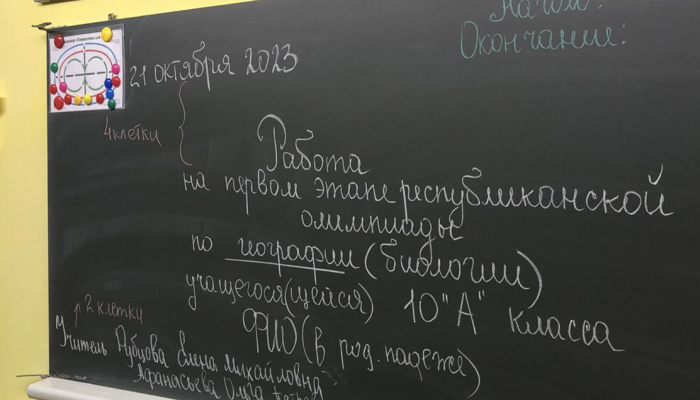 Начало:
Окончание:
21 октября 2023
4 клетки
Работа
на первом этапе республиканской
олимпиады
по географии (биологии)
учащегося(щейся) 10 "А" класса
ФИО (в род. падеже)
2 клетки
Учитель Рубцова Елена Михайловна
Афанасьева Ольга